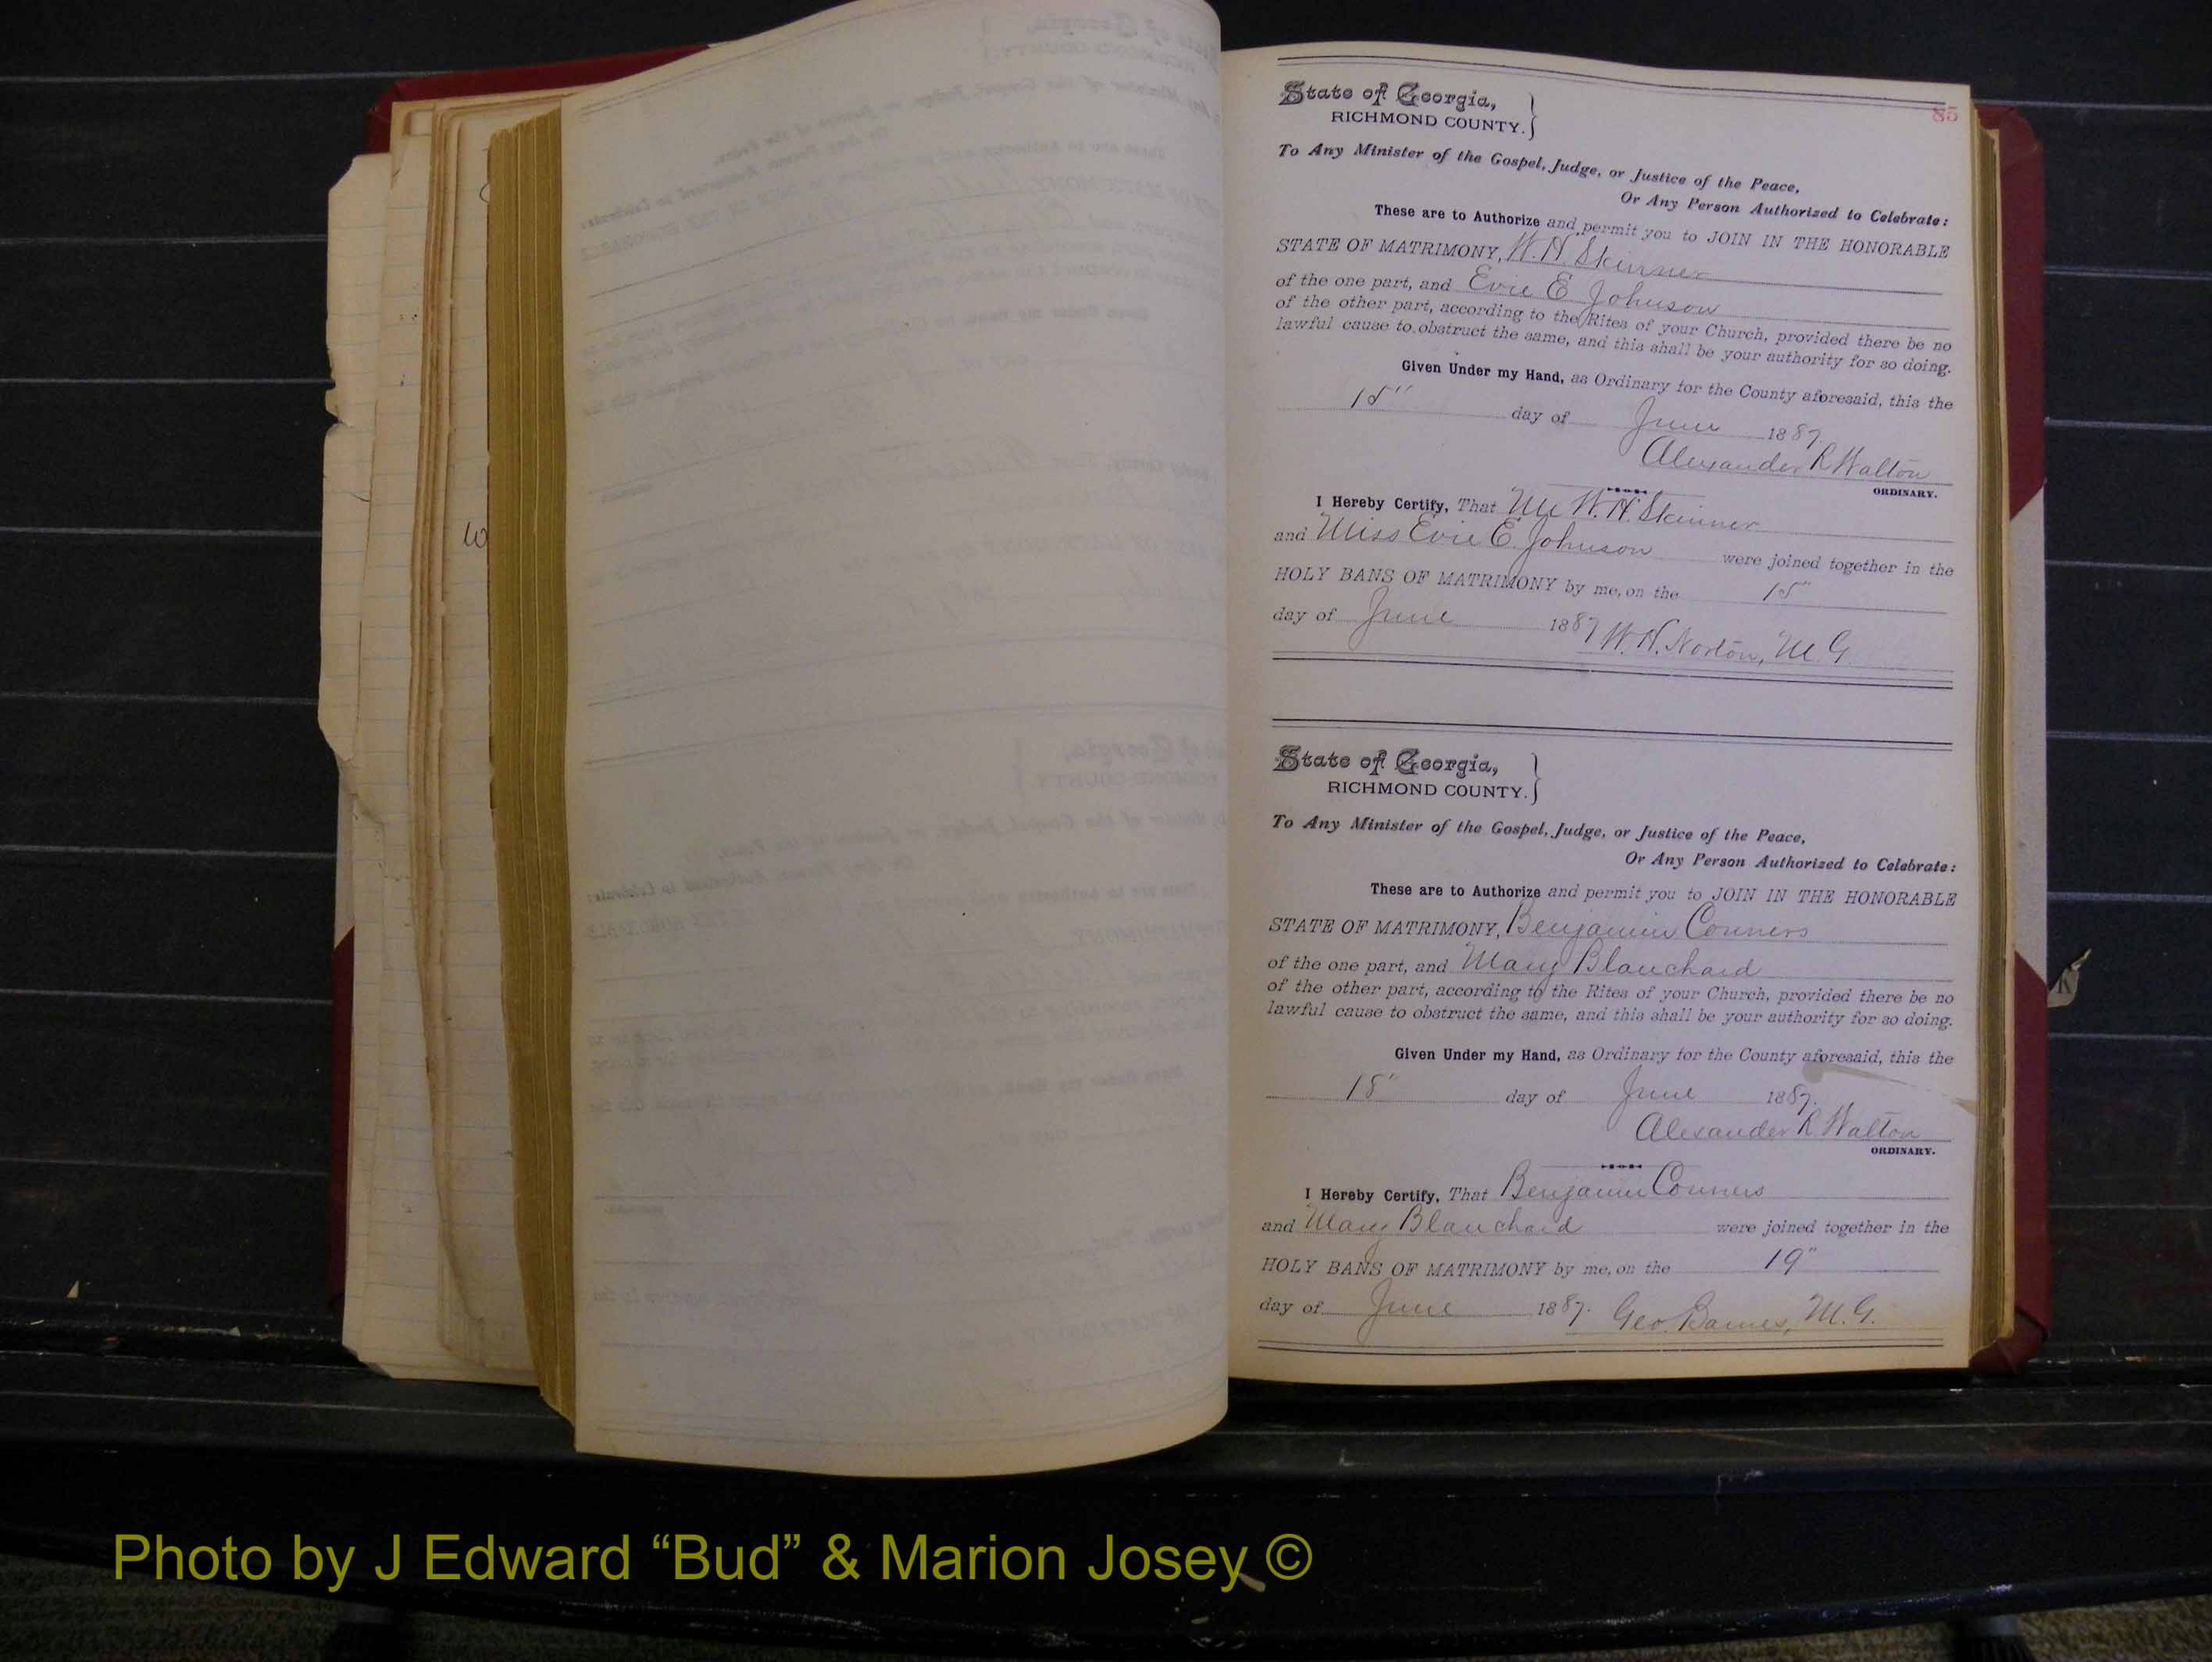 85
State of Georgia,
RICHMOND COUNTY.
To Any Minister of the Gospel, Judge, or Justice of the Peace,
Or Any Person Authorized to Celebrate:
These are to Authorize and permit you to JOIN IN THE HONORABLE
STATE OF MATRIMONY, W. H. Skinner
of the one part, and Evie E Johnson
of the other part, according to the Rites of your Church, provided there be no
lawful cause to obstruct the same, and this shall be your authority for so doing.
Given Under my Hand, as Ordinary for the County aforesaid, this the
15" day of June 1887.
Alexander R Walton
ORDINARY.
I Hereby Certify, That Mr W. H. Skinner
and Miss Evie E. Johnson were joined together in the
HOLY BANS OF MATRIMONY by me, on the 15"
day of June 1887 W. H. Norton, M. G.
State of Georgia,
RICHMOND COUNTY.
To Any Minister of the Gospel, Judge, or Justice of the Peace,
Or Any Person Authorized to Celebrate:
These are to Authorize and permit you to JOIN IN THE HONORABLE
STATE OF MATRIMONY, Benjamin Conners
of the one part, and Mary Blanchard
of the other part, according to the Rites of your Church, provided there be no
lawful cause to obstruct the same, and this shall be your authority for so doing.
Given Under my Hand, as Ordinary for the County aforesaid, this the
18" day of June 1887.
Alexander R Walton
ORDINARY.
I Hereby Certify, That Benjamin Conners
and Mary Blanchard were joined together in the
HOLY BANS OF MATRIMONY by me, on the 19"
day of June 1887. Geo. Barnes, M. G.
Photo by J Edward “Bud” & Marion Josey ©